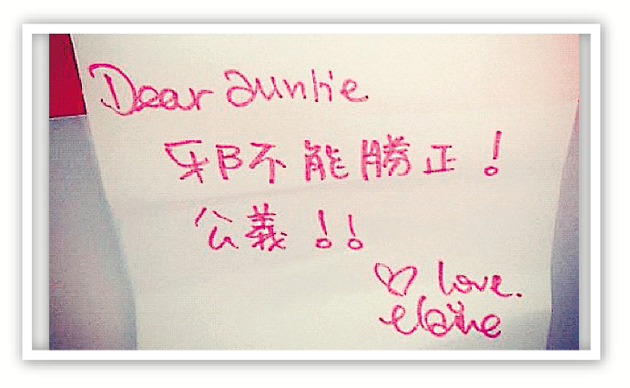 Dear auntie
邪不能勝正!
公義!!
♡ love.
elaine